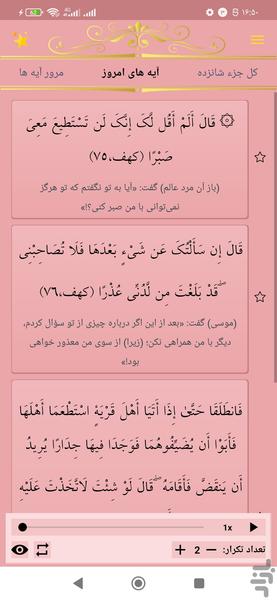 ۱۶:۵۰
کل جزء شانزده
آیه های امروز
مرور آیه ها
۞ قَالَ أَلَمْ أَقُل لَّكَ إِنَّكَ لَن تَسْتَطِيعَ مَعِيَ
صَبْرًا (کهف،۷۵)
(باز آن مرد عالم) گفت: «آیا به تو نگفتم که تو هرگز
نمی‌توانی با من صبر کنی؟!»
قَالَ إِن سَأَلْتُكَ عَن شَيْءٍ بَعْدَهَا فَلَا تُصَاحِبْنِي
ۖ قَدْ بَلَغْتَ مِن لَّدُنِّي عُذْرًا (کهف،۷۶)
(موسی) گفت: «بعد از این اگر درباره چیزی از تو سؤال کردم،
دیگر با من همراهی نکن؛ (زیرا) از سوی من معذور خواهی
بود!»
فَانطَلَقَا حَتَّىٰ إِذَا أَتَيَا أَهْلَ قَرْيَةٍ اسْتَطْعَمَا أَهْلَهَا
فَأَبَوْا أَن يُضَيِّفُوهُمَا فَوَجَدَا فِيهَا جِدَارًا يُرِيدُ
أَن يَنقَضَّ فَأَقَامَهُ ۖ قَالَ لَوْ شِئْتَ لَاتَّخَذْتَ عَلَيْهِ
1x
تعداد تکرار: − 2 +
بازار